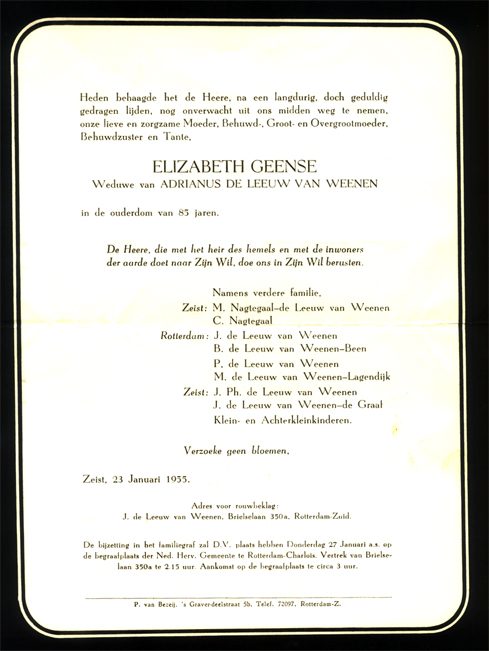 Heden behaagde het de Heere, na een langdurig, doch geduldig
gedragen lijden, nog onverwacht uit ons midden weg te nemen,
onze lieve en zorgzame Moeder, Behuwd-, Groot- en Overgrootmoeder,
Behuwdzuster en Tante,
ELIZABETH GEENSE
Weduwe van ADRIANUS DE LEEUW VAN WEENEN
in de ouderdom van 83 jaren.
De Heere, die met het heir des hemels en met de inwoners
der aarde doet naar Zijn Wil, doe ons in Zijn Wil berusten.
Namens verdere familie,
Zeist: M. Nagtegaal-de Leeuw van Weenen
C. Nagtegaal
Rotterdam: J. de Leeuw van Weenen
B. de Leeuw van Weenen-Been
P. de Leeuw van Weenen
M. de Leeuw van Weenen-Lagendijk
Zeist: J. Ph. de Leeuw van Weenen
J. de Leeuw van Weenen-de Graaf
Klein- en Achterkleinkinderen.
Verzoeke geen bloemen.
Zeist, 23 Januari 1955.
Adres voor rouwbeklag:
J. de Leeuw van Weenen, Brielselaan 350a, Rotterdam-Zuid.
De bijzetting in het familiegraf zal D.V. plaats hebben Donderdag 27 Januari a.s. op
de begraafplaats der Ned. Herv. Gemeente te Rotterdam-Charlois. Vertrek van Brielse-
laan 350a te 2.15 uur. Aankomst op de begraafplaats te circa 3 uur.
P. van Bezeij, 's Graverdeelstraat 5b, Telef. 72097, Rotterdam-Z.